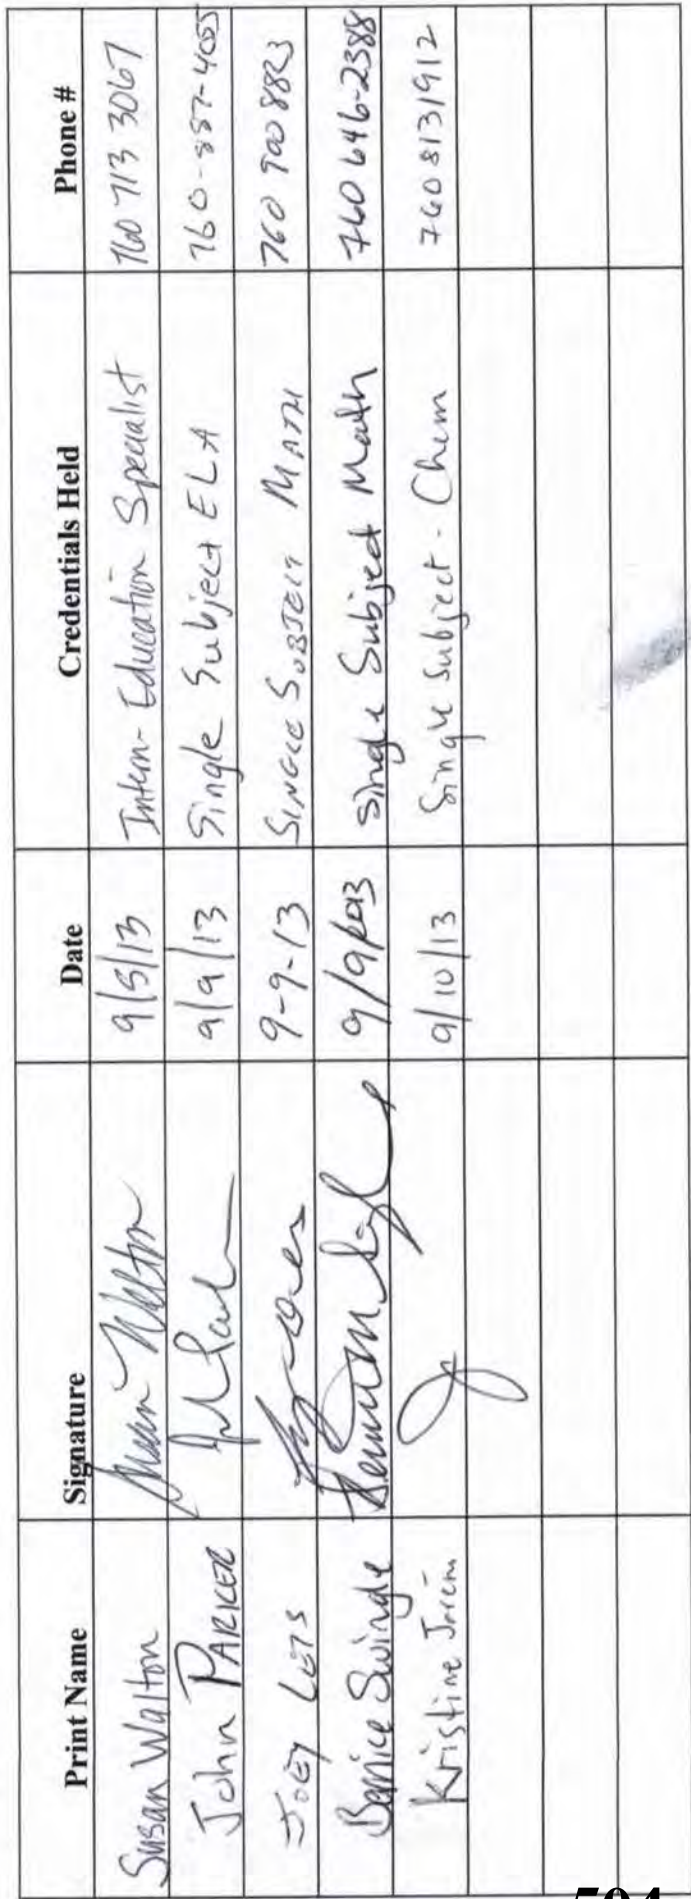 Print Name Signature Date Credentials Held Phone #
Susan Walton Susan Walton 9/5/13 Intern- Education Specialist 760 713 3067
John PARKER 9/9/13 Single Subject ELA 760-887-4055
JOEY 9-9-13 SINGLE SUBJECT MATH 760 900 8823
Bernice Swingle 9/9/2013 Single Subject Math 760 646-2388
Kristine 9/10/13 Single Subject - Chem 760 8131912
504